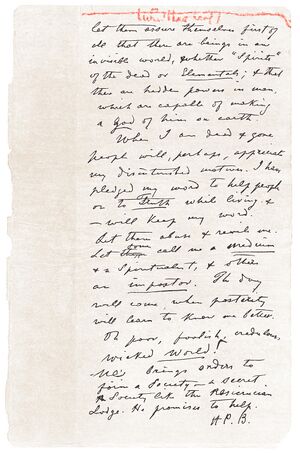 let them assure themselves first of
all that there are beings in an
invisible world, whether "Spirits"
of the dead or Elementals; & that
there are hidden powers in man,
which are capable of making
a God of him on earth.
When I am dead & gone
people will, perhaps, appreciate
my disinterested motives. I have
pledged my word to help people
on to Truth while living &
— will keep my word.
Let them abuse & revile me.
Let some call me a medium
& a Spiritualist, & others
an impostor. The day
will come when posterity
will learn to know me better.
Oh poor, foolish, credulous,
wicked World!
brings orders to
form a Society — a secret
Society like the Rosicrucian
Lodge. He promises to help.
H P. B.